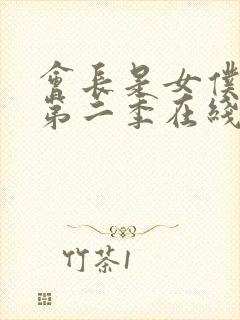 會長是女僕
第二季在綫
竹茶1